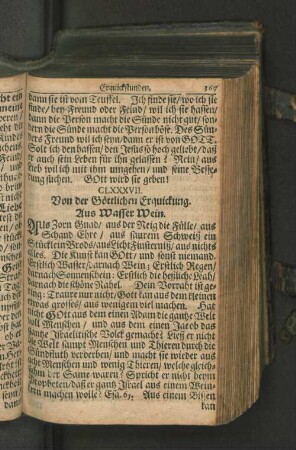 Erquickstunden. 369
dann sie ist vom Teuffel. Ich finde sie/ wo ich sie
finde/ bey Freund oder Feind/ will ich sie hassen/
dann die Person macht die Sünde nicht gut/ son-
dern die Sünde macht die Person böse. Des Sün-
ders Freund will ich seyn/ dann er ist von GOTT.
Solt ich den hassen/ den Jesus so hoch geliebt/ daß
er auch sein Leben für ihn gelassen? Nein/ aus
Lieb will ich mit ihm umgehen/ und seine Besse-
rung suchen. GOtt wird sie geben!
CLXXXVII.
Von der Göttlichen Erquickung.
Aus Wasser Wein.
AUs Zorn Gnad/ aus der Neig die Fülle/ aus
Schand Ehre/ aus saurem Schweiß ein
Stücklein Brods/ aus Liecht Finsterniß/ aus nichts
alles. Die Kunst kan GOtt/ und sonst niemand.
Erstlich Wasser/ darnach Wein; Erstlich Regen/
darnach Sonnenschein; Erstlich die heßliche Leah/
darnach die schöne Rahel. Dein Vorraht ist ge-
ring: Traure nur nicht/ Gott kan aus dem kleinen
etwas grosses/ aus wenigem viel machen. Hat
nicht Gott aus dem einen Adam die gantze Welt
voll Menschen/ und aus dem einen Jacob das
gantze Israelitische Volck gemacht? Ließ er nicht
die Welt samt Menschen und Thieren durch die
Sündfluth verderben/ und macht sie wieder aus
acht Menschen und wenig Thieren/ welche gleich-
sam der Same waren? Spricht er nicht beym
Propheten/ daß er gantz Israel aus einem Wein-
machen wolle? Esa. 65. Aus einem Bissen
kan